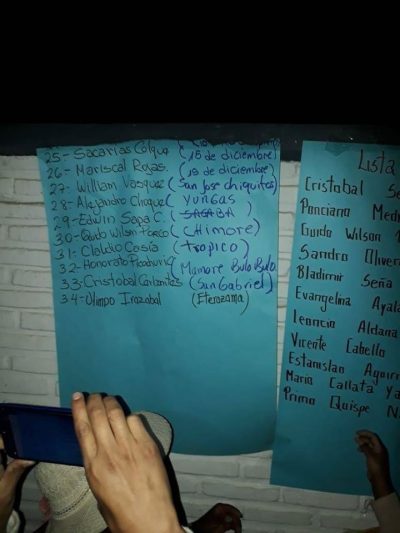 25- Sacarias Colque (15 de diciembre)
26- Mariscal Rojas. (15 de diciembre)
27- William Vasquez (San Jose chiquitos)
28- Alejandro Choque (YUNGAS)
29- Edwin Sapa C. (SACABA)
30- Guido Wilson (CHIMORE)
31- Claldio Casia (tropico)
32- Honorato (Mamore Bulo Bulo)
33- Cristobal (San Gabriel)
34- Olimpo Irazabal (Eterazama)
Lista
Cristobal
Ponciano
Guido Wilson
Sandro
Bladimir Seña
Evangelina
Leoncia Aldana
Vicente Cabello
Estanislao
Maria Callata
Primo Quispe N